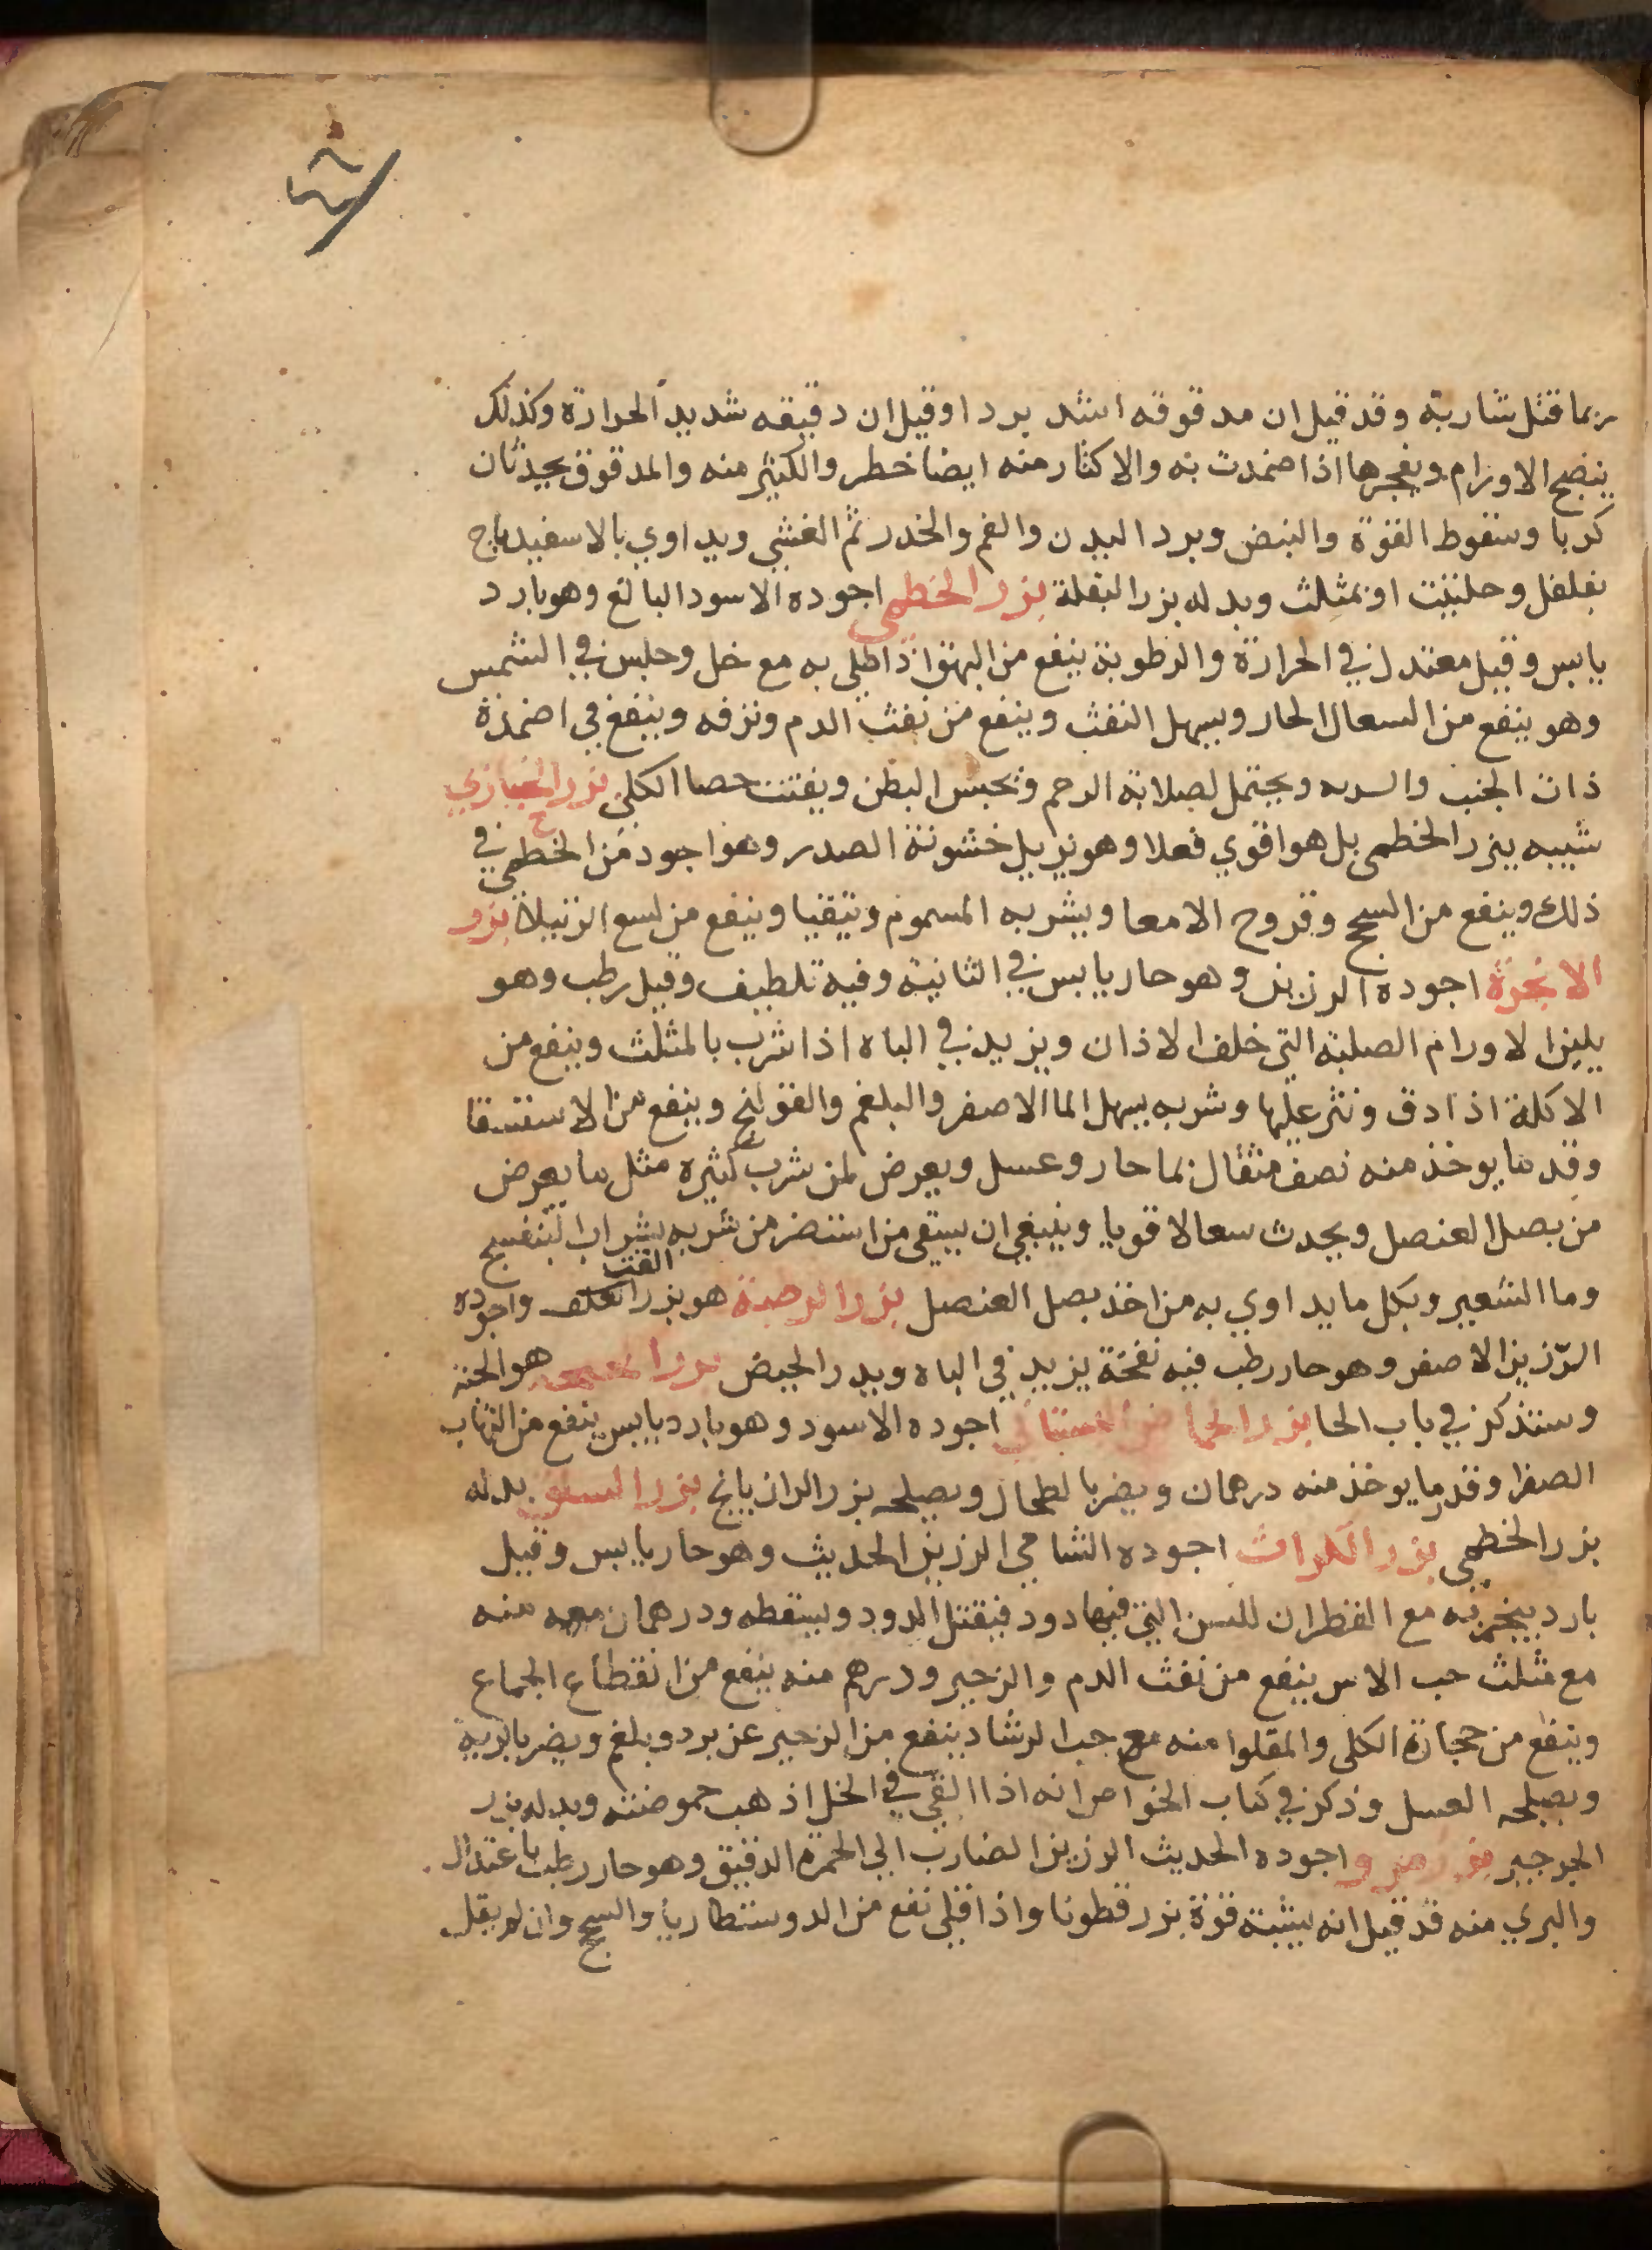 ربما قتل شاربة وقد قيل ان مدقوقه اشد بردا وقيل ان دقيقه شديد الحرارة وكذلك
ينضج الاورام ويفجرها اذا ضمدت به والاكثار منه ايضا خطر والكثير منه والمدقوق يحدثان
كربا وسقوط القوة والنبض وبرد البدن والغم والخدر ثم الغشي ويداوي بالاسفيدباج
بفلفل وحلتيت او بمثلث وبدله بزر البقلة بزر الخطمي اجوده الاسود البالغ وهو بارد
يابس وقيل معتدل في الحرارة والرطوبة ينفع من البهق اذا طلي به مع خل وجلس في الشمس
وهو ينفع من السعال الحار ويسهل النفث وينفع من نفث الدم ونزفه وينفع في اضمدة
ذات الجنب والسريه ويحتمل لصلابة الرحم وتحبس البطن ويفتت حصا الكلى بزر الخبازي
شبيه ببزر الخطمى بل هو اقوي فعلا وهو يزيل خشونة الصدر وهو اجود من الخطمي في
ذلك وينفع من السحج وقروح الامعا ويشربه المسموم ويتقيا وينفع من لسع الرتيلا بزر
الانجرة اجوده الرزين وهو حار يابس في الثانية وفيه تلطيف وقيل رطب وهو
يلين الاورام الصلبة التي خلف الاذان ويزيد في الباه اذا شرب بالمثلث وينفع من
الاكلة اذا دق ونثر عليها وشربه يسهل الما الاصفر والبلغم والقولنج وينفع من الاستسقا
وقدر ما يوخذ منه نصف مثقال بما حار وعسل ويعرض لمن شرب كثيره مثل ما يعرض
من بصل العنصل ويحدث سعالا قويا وينبغي ان يسقى من استضر من شربه بشراب البنفسج
وما الشعير وبكل ما يداوي به من اخذ بصل العنصل بزر الرطبة هو بزر العلف القت واجوده
الرزين الاصفر وهو حار رطب فيه نفخة يزيد في الباه ويدر الحيض بزر هو الحبة
وسنذكر في باب الحا بزر الحماض البستاني اجوده الاسود وهو بارد يابس ينفع من التهاب
الصفرا وقدر ما يوخذ منه درهمان ويضر بالطحال ويصلحه بزر الرازيانج بزر بدله
بزر الخطمي بزر الكراث اجوده الشامي الرزين الحديث وهو حار يابس وقيل
بارد يبخر به مع القطران للسن التي فيها دود فيقتل الدود ويسقطه ودرهمان منه
مع مثلث حب الاس ينفع من نفث الدم والزحير ودرهم منه ينفع من انقطاع الجماع
وينفع من حجارة الكلى والمقلوا منه مع حب الرشاد ينفع من الزحير عن برد وبلغم ويضر بالرية
ويصلحه العسل وذكر في كتاب الخواص انه اذا القي في الخل اذهب حموضته وبدله بزر
الجرجير بزر مرو اجوده الحديث الرزين الضارب الي الحمرة الدقيق وهو حار رطب باعتدال
والبري منه قد قيل انه يشبه قوة بزر قطونا واذا قلي نفع من الدوسنطاريا والسحج وان لم يقل